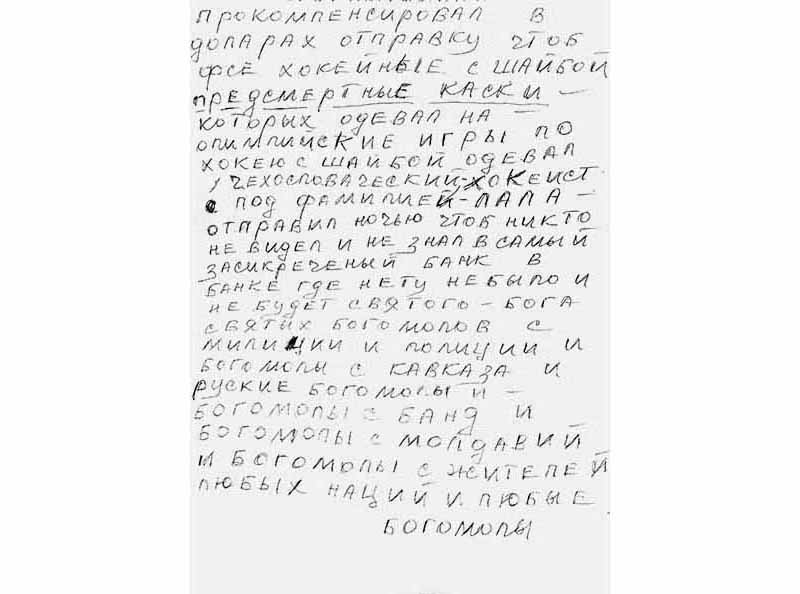 ПРОКОМПЕНСИРОВАЛ В
ДОЛАРАХ ОТПРАВКУ ЧТОБ
ФСЕ ХОКЕЙНЫЕ С ШАЙБОЙ
ПРЕДСМЕРТНЫЕ КАСКИ —
КОТОРЫХ ОДЕВАЛ НА —
ОЛИМПИЙСКИЕ ИГРЫ ПО
ХОКЕЮ С ШАЙБОЙ ОДЕВАЛ
ЧЕХОСЛОВАЧЕСКИЙ-ХОКЕИСТ
ПОД ФАМИЛИЕЙ-ЛАЛА —
ОТПРАВИЛ НОЧЬЮ ЧТОБ НИКТО
НЕ ВИДЕЛ И НЕ ЗНАЛ В САМЫЙ
ЗАСИКРЕЧЕНЫЙ БАНК В
БАНКЕ ГДЕ НЕТУ НЕБЫЛО И
НЕ БУДЕТ СВЯТОГО - БОГА
СВЯТЫХ БОГОМОЛОВ С
МИЛИЦИИ И ПОЛИЦИИ И
БОГОМОЛЫ С КАВКАЗА И
РУСКИЕ БОГОМОЛЫ И —
БОГОМОЛЫ С БАНД И
БОГОМОЛЫ С МОЛДАВИЙ
И БОГОМОЛЫ С ЖИТЕЛЕЙ
ЛЮБЫХ НАЦИЙ И ЛЮБЫЕ
БОГОМОЛЫ